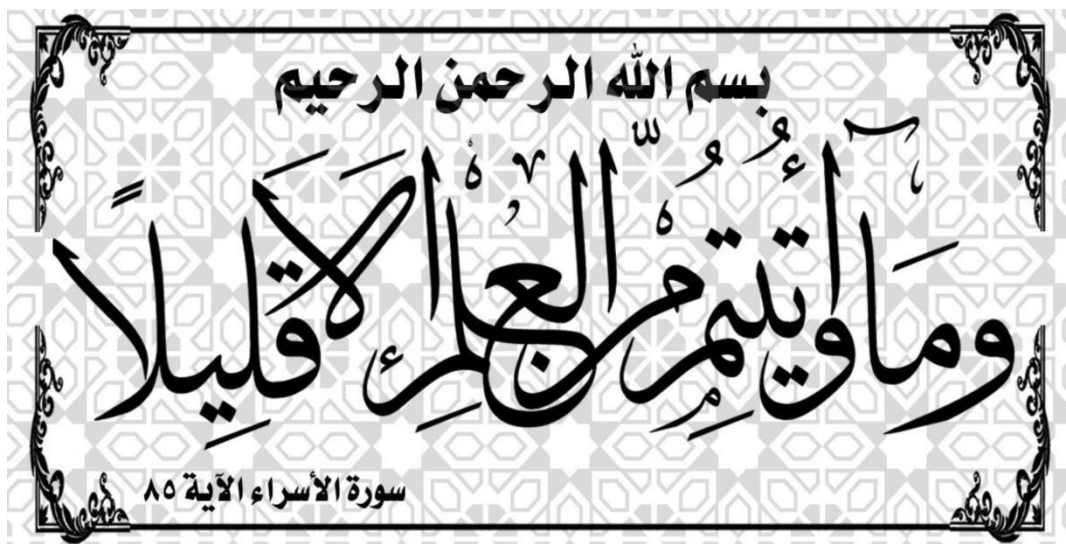 بسم الله الرحمن الرحيم
وَمَآ أُوتِيتُم مِّنَ الْعِلْمِ إِلَّا قَلِيلًا
سورة الأسراء الآية ٨٥